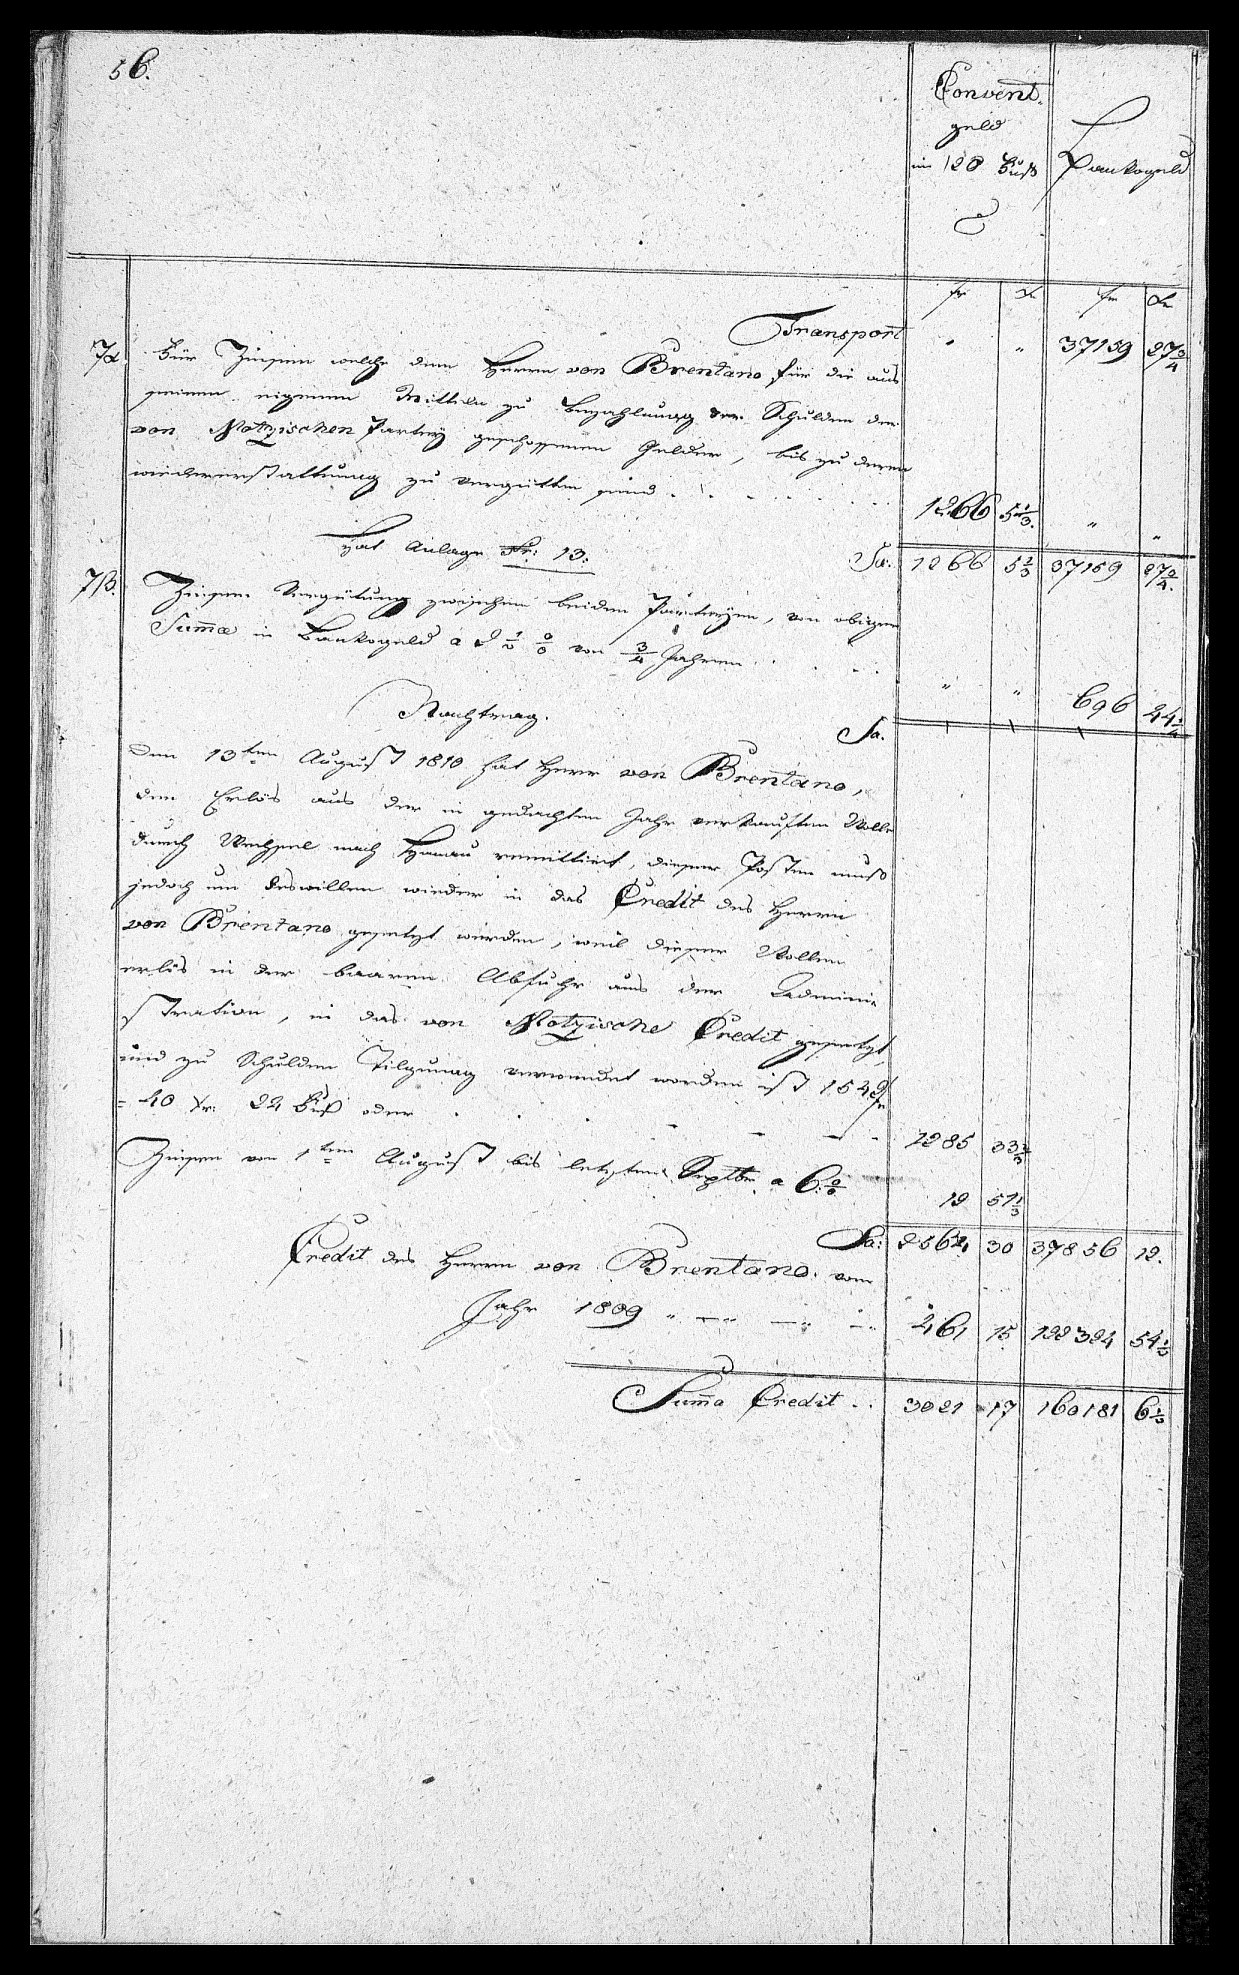 56.
Convent.
geld
im 120 Fuß
Bankogeld
fr xr fr xr
Transport " " 37159 27 3/4
7α Für Zinsen welche dem Herrn von Brentano für die aus
seinen eigenen Mitteln zu Bezahlung der Schulden der
von Motzischen Partey geschossenen Gelder, bis zu deren
wiedererstattung zu vergütten sind . . . . . .
1266 5 2/3 " "
Lat Anlage Nr: 13:
Sa: 1266 5 2/3 37159 27 3/4
7β. Zinsen Vergütung zwischen beiden Parteyen, von obiger
Summa in Bankogeld a 2 1/2 % von 3/4 Jahren . . . .
" " 696 44 1/4
Nachtrag.
Sa.
Den 13ten August 1810 hat Herr von Brentano,
den Erlös aus der in gedachten Jahr verkauften Wolle
durch Wechsel nach Hanau remittirt, dieser Posten muß
jedoch um deswillen wieder in das Credit des Herrn
von Brentano gesetzt werden, weil dieser Wollen
erlös in der baaren Abfuhr aus der Admini-
stration, in das von Motzische Credit gesetzt,
und zu Schulden Tilgung verwendet worden ist 1542 fr
= 40 xr: 24 Fuß oder . . . . — — — 1285 33 1/3
Zinsen von 1ten August bis letzten Septbr. a 6 %
12 51 1/3
Sa: 2564 30 37856 12.
Credit des Herrn von Brentano. vom
Jahr 1809 " — " — " — " 461 15 122324 54 1/2
Summa Credit . . 3021 17 160181 6 1/2